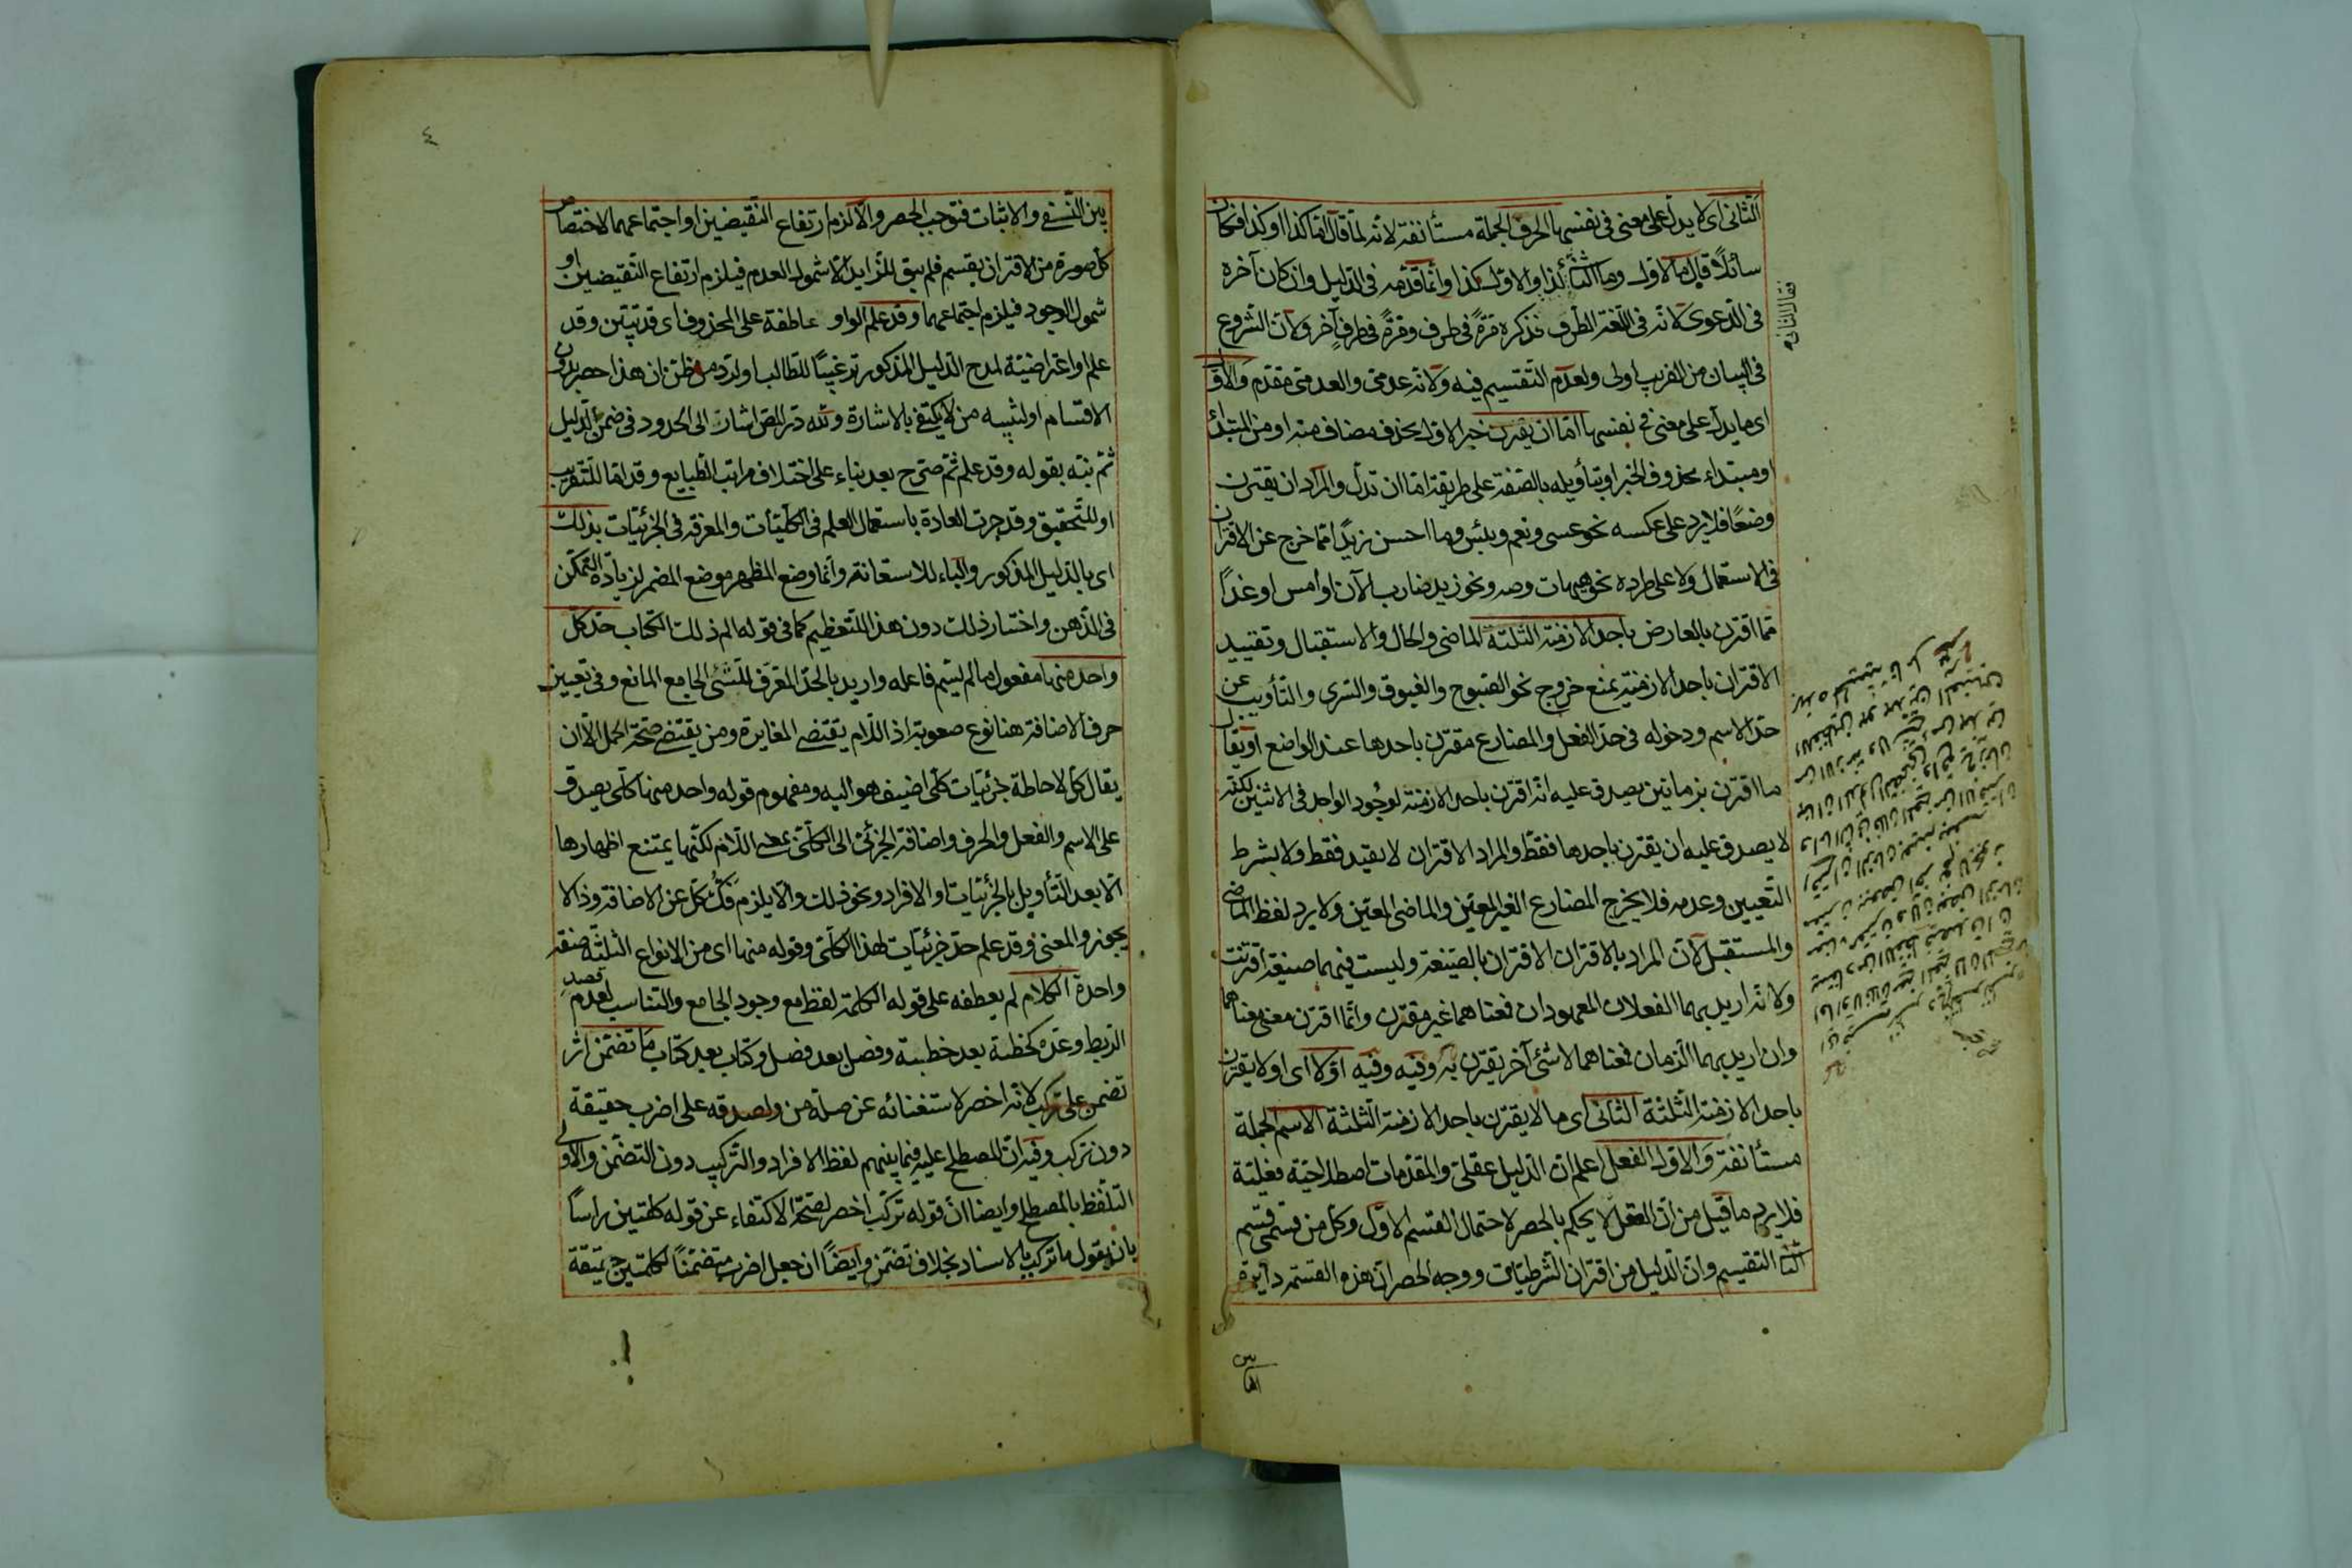 الثانى اى لا يدل على معنى فى نفسها الحرف الجملة مستأنفة لانه لما قال اما كذا او كذا فكان
سائلاً قال ما الاول وما الثانى كذا والاول كذا وانما قدمه فى الدليل وان كان آخره
فى الدعوى لانه فى اللغة الطرف فذكره مرةً فى طرف ومرةً فى طرفٍ آخر ولان الشروع
فى البيان من القريب اولى ولعدم التقسيم فيه ولانه عدمى والعدمى مقدم والاول
اى ما يدل على معنى فى نفسها اما ان يقترن خبر الاول بحذف مضاف منه او من المبتدأ
او مبتداء محذوف الخبر او بتأويله بالصفة على طريقة اما ان تدل والمراد ان يقترن
وضعًا فلا يرد على عكسه نحو عسى ونعم وبئس وما احسن زيدًا مما خرج عن الاقتران
فى الاستعمال ولا على طرده نحو هيهات وصه ونحو زيد ضارب الآن او امس او غدًا
مما اقترن بالعارض باحد الازمنة الثلثة الماضى والحال والاستقبال وتقييد
الاقتران باحد الازمنة يمنع خروج نحو الصبوح والغبوق والسرى والتأويب عن
حد الاسم ودخوله فى حد الفعل والمضارع مقترن باحدها عند الواضع او يقال
ما اقترن بزمانين يصدق عليه انه اقترن باحد الازمنة لوجود الواحد فى الاثنين لكنه
لا يصدق عليه ان يقترن باحدها فقط والمراد الاقتران لا بقيد فقط ولا بشرط
التعيين وعدمه فلا يخرج المضارع الغير المعين والماضى المعين ولا يرد لفظ الماضى
والمستقبل لان المراد بالاقتران الاقتران بالصيغة وليست فيهما صيغة اقترنت
ولانه اريد بهما الفعلان المعهودان فمعناهما غير مقترن وانما اقترن معنى معناهما
وان اريد بهما الزمان فمعناهما لا شئ آخر يقترن به وفيه وفيه او لا اى او لا يقترن
باحد الازمنة الثلثة الثانى اى ما لا يقترن باحد الازمنة الثلثة الاسم الجملة
مستأنفة والاول الفعل اعلم ان الدليل عقلى والمقدمات اصطلاحية فعلية
فلا يرد ما قيل من ان العقل لا يحكم بالحصر لاحتمال القسم الاول وكل من قسمى قسم
التقسيم وان الدليل من اقتران الشرطيات ووجه الحصر ان هذه القسمة دايرة
بين
٤
بين النفى والاثبات فتوجب الحصر والا لزم ارتفاع النقيضين او اجتماعهما لاختصاص
كل صورة من الاقتران بقسم فلم يبق للزايد الا شمول العدم فيلزم ارتفاع النقيضين او
شمول الوجود فيلزم اجتماعهما وقد علم الواو عاطفة على المحذوف اى قد تبين وقد
علم او اعتراضية لمدح الدليل المذكور ترغيبًا للطالب او لرد من ظن ان هذا حصر بدون
الاقسام او لتنبيه من لا يكتفى بالاشارة ولله در المص اشار الى الحدود فى ضمن الدليل
ثم نبه بقوله وقد علم ثم صرح بعد بناء على اختلاف مراتب الطبايع وقد اما للتقريب
او للتحقيق وقد جرت العادة باستعمال العلم فى الكليات والمعرفة فى الجزئيات بذلك
اى بالدليل المذكور والباء للاستعانة وانما وضع المظهر موضع المضمر لزيادة التمكن
فى الذهن واختار ذلك دون هذا للتعظيم كما فى قوله الم ذلك الكتاب حد كل
واحد منها مفعول ما لم يسم فاعله واريد بالحد المعرف للشئ الجامع المانع وفى تعيين
حرف الاضافة هنا نوع صعوبة اذ اللام يقتضى المغايرة ومن يقتضى صحة الحمل الا ان
يقال كل لاحاطة جزئيات كلى اضيف هو اليه ومفهوم قوله واحد منها كلى يصدق
على الاسم والفعل والحرف واضافة الجزئى الى الكلى بمعنى اللام لكنها يمتنع اظهارها
الا بعد التأويل بالجزئيات او الافراد ونحو ذلك والا يلزم فك كل عن الاضافة وذا لا
يجوز والمعنى وقد علم حد جزئيات لهذا الكلى وقوله منها اى من الانواع الثلثة صفة
واحدة الكلام لم يعطفه على قوله الكلمة لفظ مع وجود الجامع والتناسب لعدم قصد
الربط وعده كخطبة بعد خطبة وفصل بعد فصل وكتاب بعد كتاب ما تضمن اثر
تضمن على تركب لانه اخصر لاستغنائه عن صلة من ولصدقه على اضرب حقيقة
دون تركب وفيه ان المصطلح عليه فيما بينهم لفظ الافراد والتركيب دون التضمن والاولى
التلفظ بالمصطلح وايضا ان قوله تركب اخصر لصحة الاكتفاء عن قوله كلمتين رأسًا
بان يقول ما تركب بالاسناد بخلاف تضمن وايضًا ان جعل اضرب متضمنًا لكلمتين حقيقة